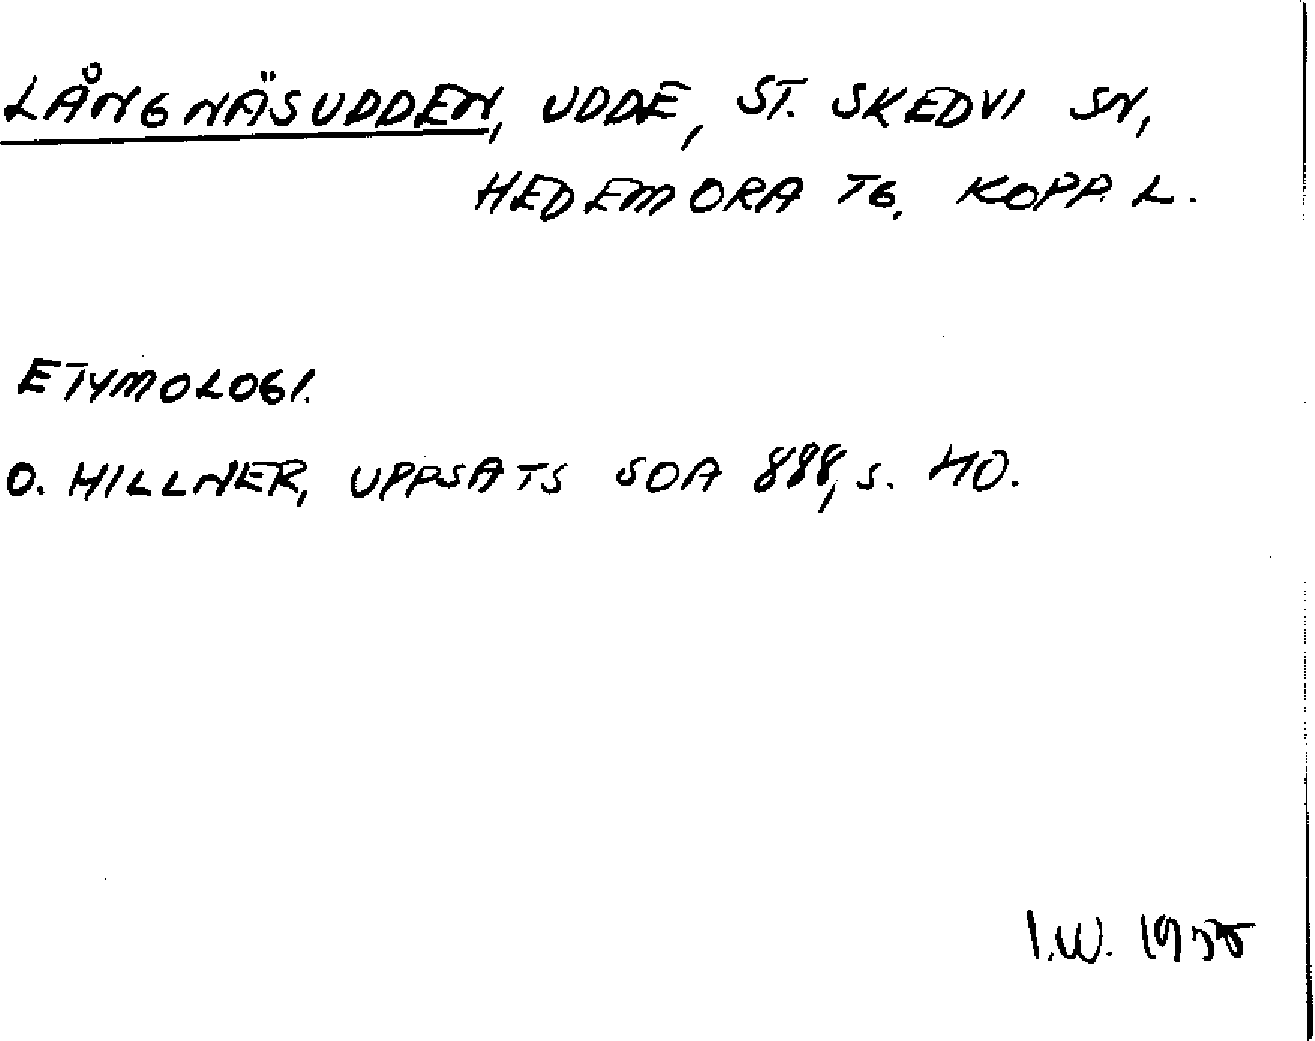 LÅNGNÄSUDDEN, UDDE, ST. SKEDVI SN,
HEDEMORA TG, KOPP. L.
ETYMOLOGI.
O. HILLNER, UPPSATS SOA 888, s. 40.
I.W. 1955